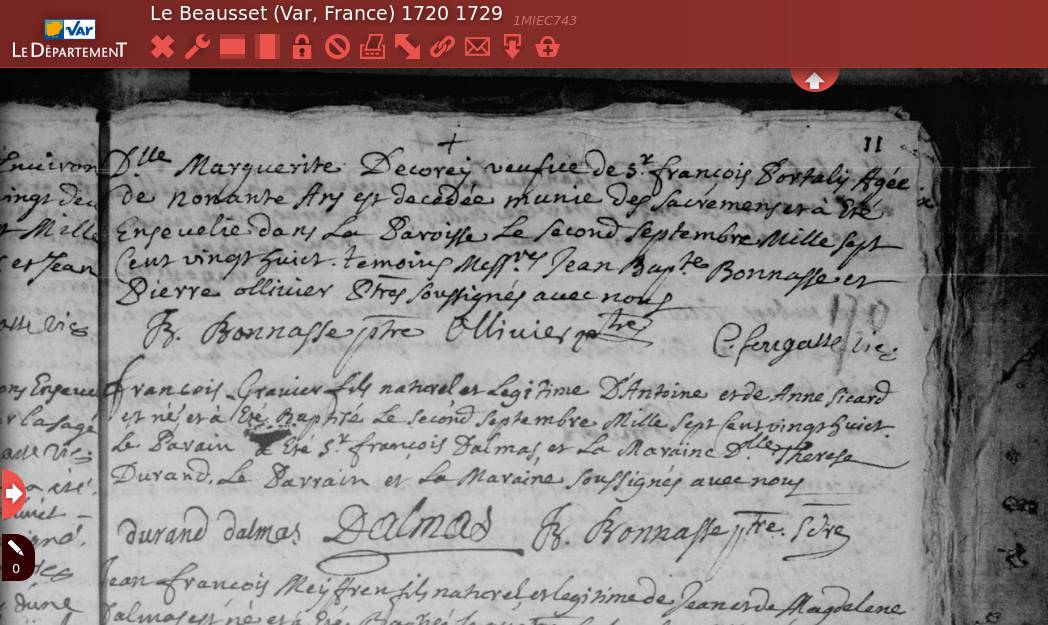 Le Beausset (Var, France) 1720 1729 1MIEC743
VAR
LE DÉPARTEMENT
11
D.lle Marguerite Decorej veufue de S.r françois Portalij Agée
de nonante Ans est decedée munie des Sacremens et à Eté
Enseuelie dans La Paroisse Le second Septembre Mille Sept
Cent vingt huict. temoins Mess.rs Jean Bap.te Bonnasse et
Pierre ollivier Ptres soussignés avec nous
B. Bonnasse ptre Ollivier ptre C. fougasse Vic:
françois Gravier fils naturel et Legitime D'Antoine et de Anne Sicard
est né et à Eté Baptisé Le second Septembre Mille Sept Cent vingt huict.
Le Parain à Eté S.r françois Dalmas, et La Maraine D.lle Therese
Durand. Le Parrain et La Maraine soussignés avec nous
durand dalmas Dalmas B. Bonnasse ptre. Scre
Jean françois Meiffren fils naturel et legitime de Jean et de Magdelene
Dalmas est né et à Eté
Environ
Mille
et Jean
d'une
0